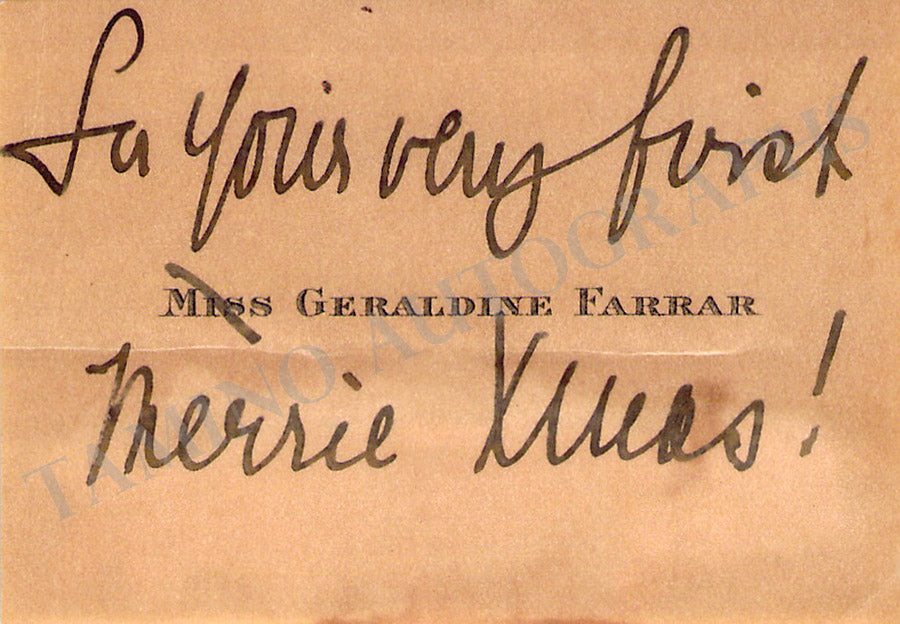 For your very first
Miss Geraldine Farrar
Merrie Xmas!
TAMINO AUTOGRAPHS